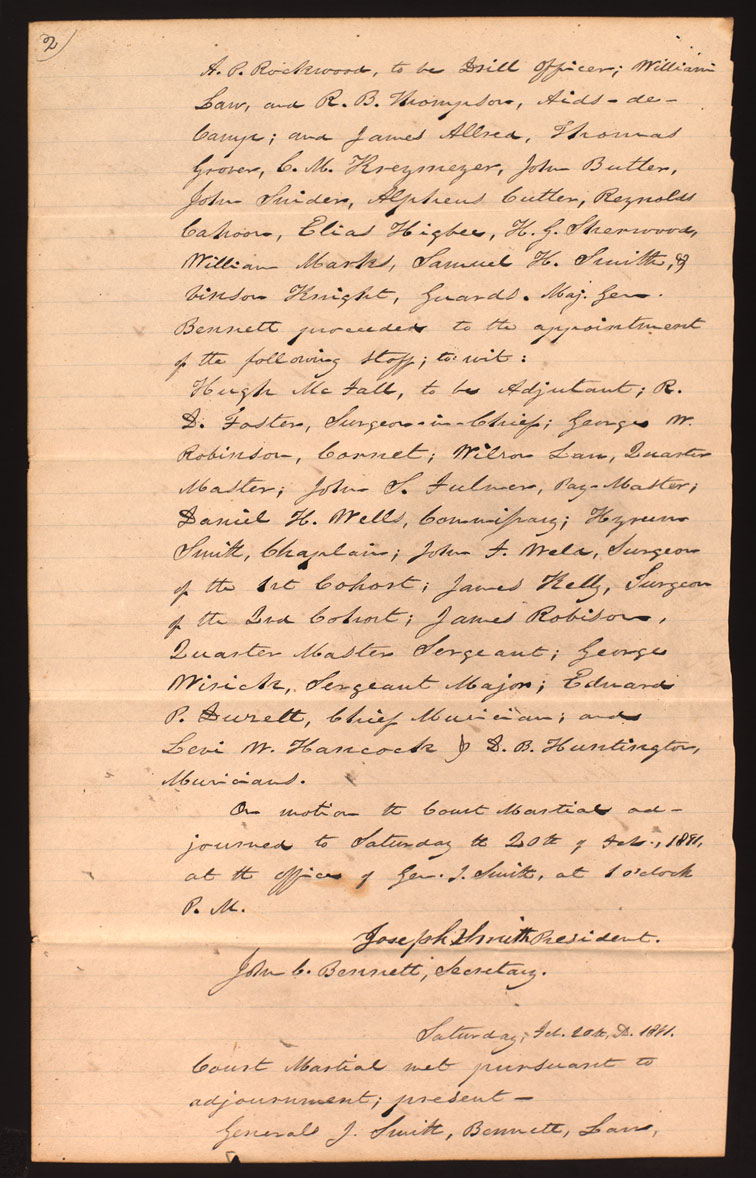 2)
A. P. Rockwood, to be Drill Officer; William
Law, and R. B. Thompson, Aids-de-
Camp; and James Allred, Thomas
Grover, C. M. Kreymeyer, John Butler,
John Snider, Alpheus Cutler, Reynolds
Cahoon, Elias Higbee, H. G. Sherwood,
William Marks, Samuel H. Smith, &
Vinson Knight, Guards. Maj. Gen.
Bennett proceeded to the appointment
of the following staff; to wit:
Hugh McFall, to be Adjutant; R.
D. Foster, Surgeon-in-Chief; George W.
Robinson, Cornet; Wilson Law, Quarter
Master; John S. Fulmer, Pay-Master;
Daniel H. Wells, Commissary; Hyrum
Smith, Chaplain; John F. Weld, Surgeon
of the 1st Cohort; James Kelly, Surgeon
of the 2nd Cohort; James Robison,
Quarter Master Sergeant; George
Wirick, Sergeant Major; Edward
P. Duzett, Chief Musician; and
Levi W. Hancock & D. B. Huntington,
Musicians.
On motion the Court Martial ad-
journed to Saturday the 20th of Feb., 1841,
at the office of Gen. J. Smith, at 1 o'clock
P. M.
Joseph Smith President.
John C. Bennett, Secretary.
Saturday, Feb. 20th, A.D. 1841.
Court Martial met pursuant to
adjournment; present—
Generals J. Smith, Bennett, Law,